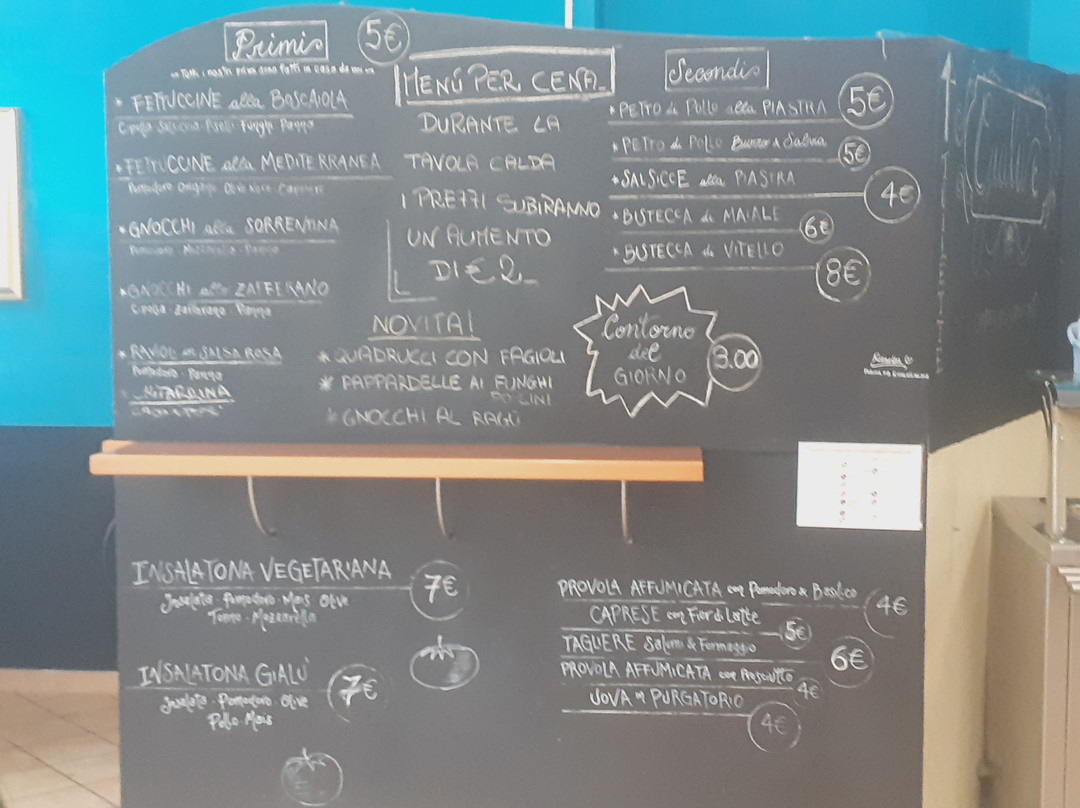 Primi
5€
FETTUCCINE alla BOSCAIOLA
Funghi Panna
FETTUCCINE alla MEDITERRANEA
Pomodoro Origano Olive Nere Capperi
GNOCCHI alla SORRENTINA
Pomodoro Mozzarella Panna
GNOCCHI allo ZAFFERANO
Cipolla Zafferano Panna
RAVIOLI in SALSA ROSA
Pomodoro Panna
MENÚ PER CENA
DURANTE LA
TAVOLA CALDA
I PREZZI SUBIRANNO
UN AUMENTO
DI € 2
NOVITA'
* QUADRUCCI CON FAGIOLI
* PAPPARDELLE AI FUNGHI
PORCINI
* GNOCCHI AL RAGÙ
Secondi
PETTO di Pollo alla PIASTRA 5€
PETTO di POLLO Burro & Salvia 5€
SALSICCE alla PIASTRA 4€
BISTECCA di MAIALE 6€
BISTECCA di VITELLO 8€
Contorno
del
GIORNO
3.00
INSALATONA VEGETARIANA 7€
Insalata - Pomodoro - Mais Olive
Tonno - Mozzarella
INSALATONA GIALU' 7€
Insalata - Pomodoro - Olive
Pollo Mais
PROVOLA AFFUMICATA con Pomodoro & Basilico 4€
CAPRESE con Fior di Latte 5€
TAGLIERE Salumi & Formaggio 6€
PROVOLA AFFUMICATA con Prosciutto 4€
UOVA in PURGATORIO 4€